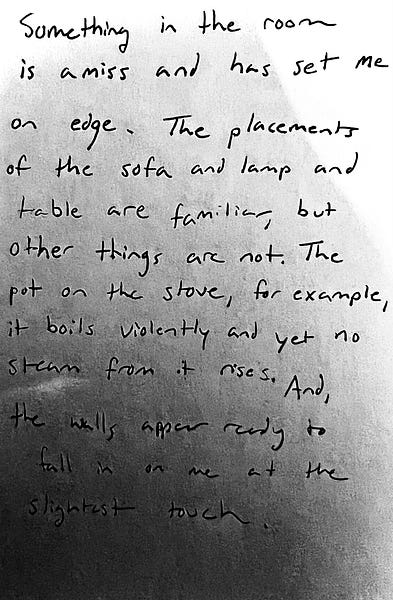 Something in the room
is amiss and has set me
on edge. The placements
of the sofa and lamp and
table are familiar, but
other things are not. The
pot on the stove, for example,
it boils violently and yet no
steam from it rises. And,
the walls appear ready to
fall in on me at the
slightest touch.